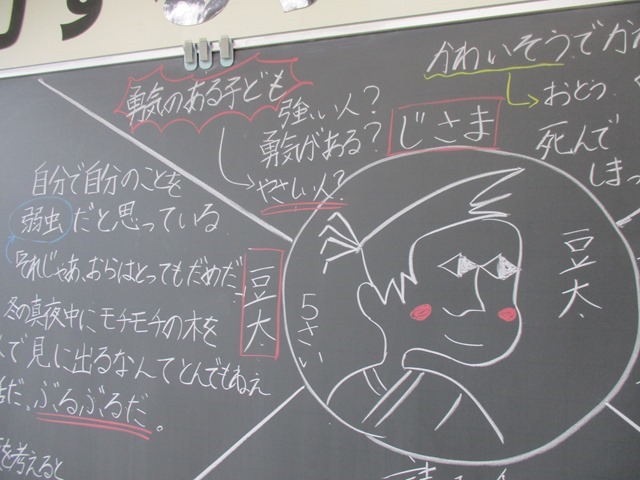 勇気のある子ども
強い人？
勇気がある？
やさしい人？
じさま
かわいそうで
おとう
死んで
しまっ
自分で自分のことを
弱虫だと思っている
それじゃあ、おらはとってもだめだ
冬の真夜中にモチモチの木を
で見に出るなんてとんでもねえ
だ。ぶるぶるだ。
を考えると
豆太
5さい
豆太